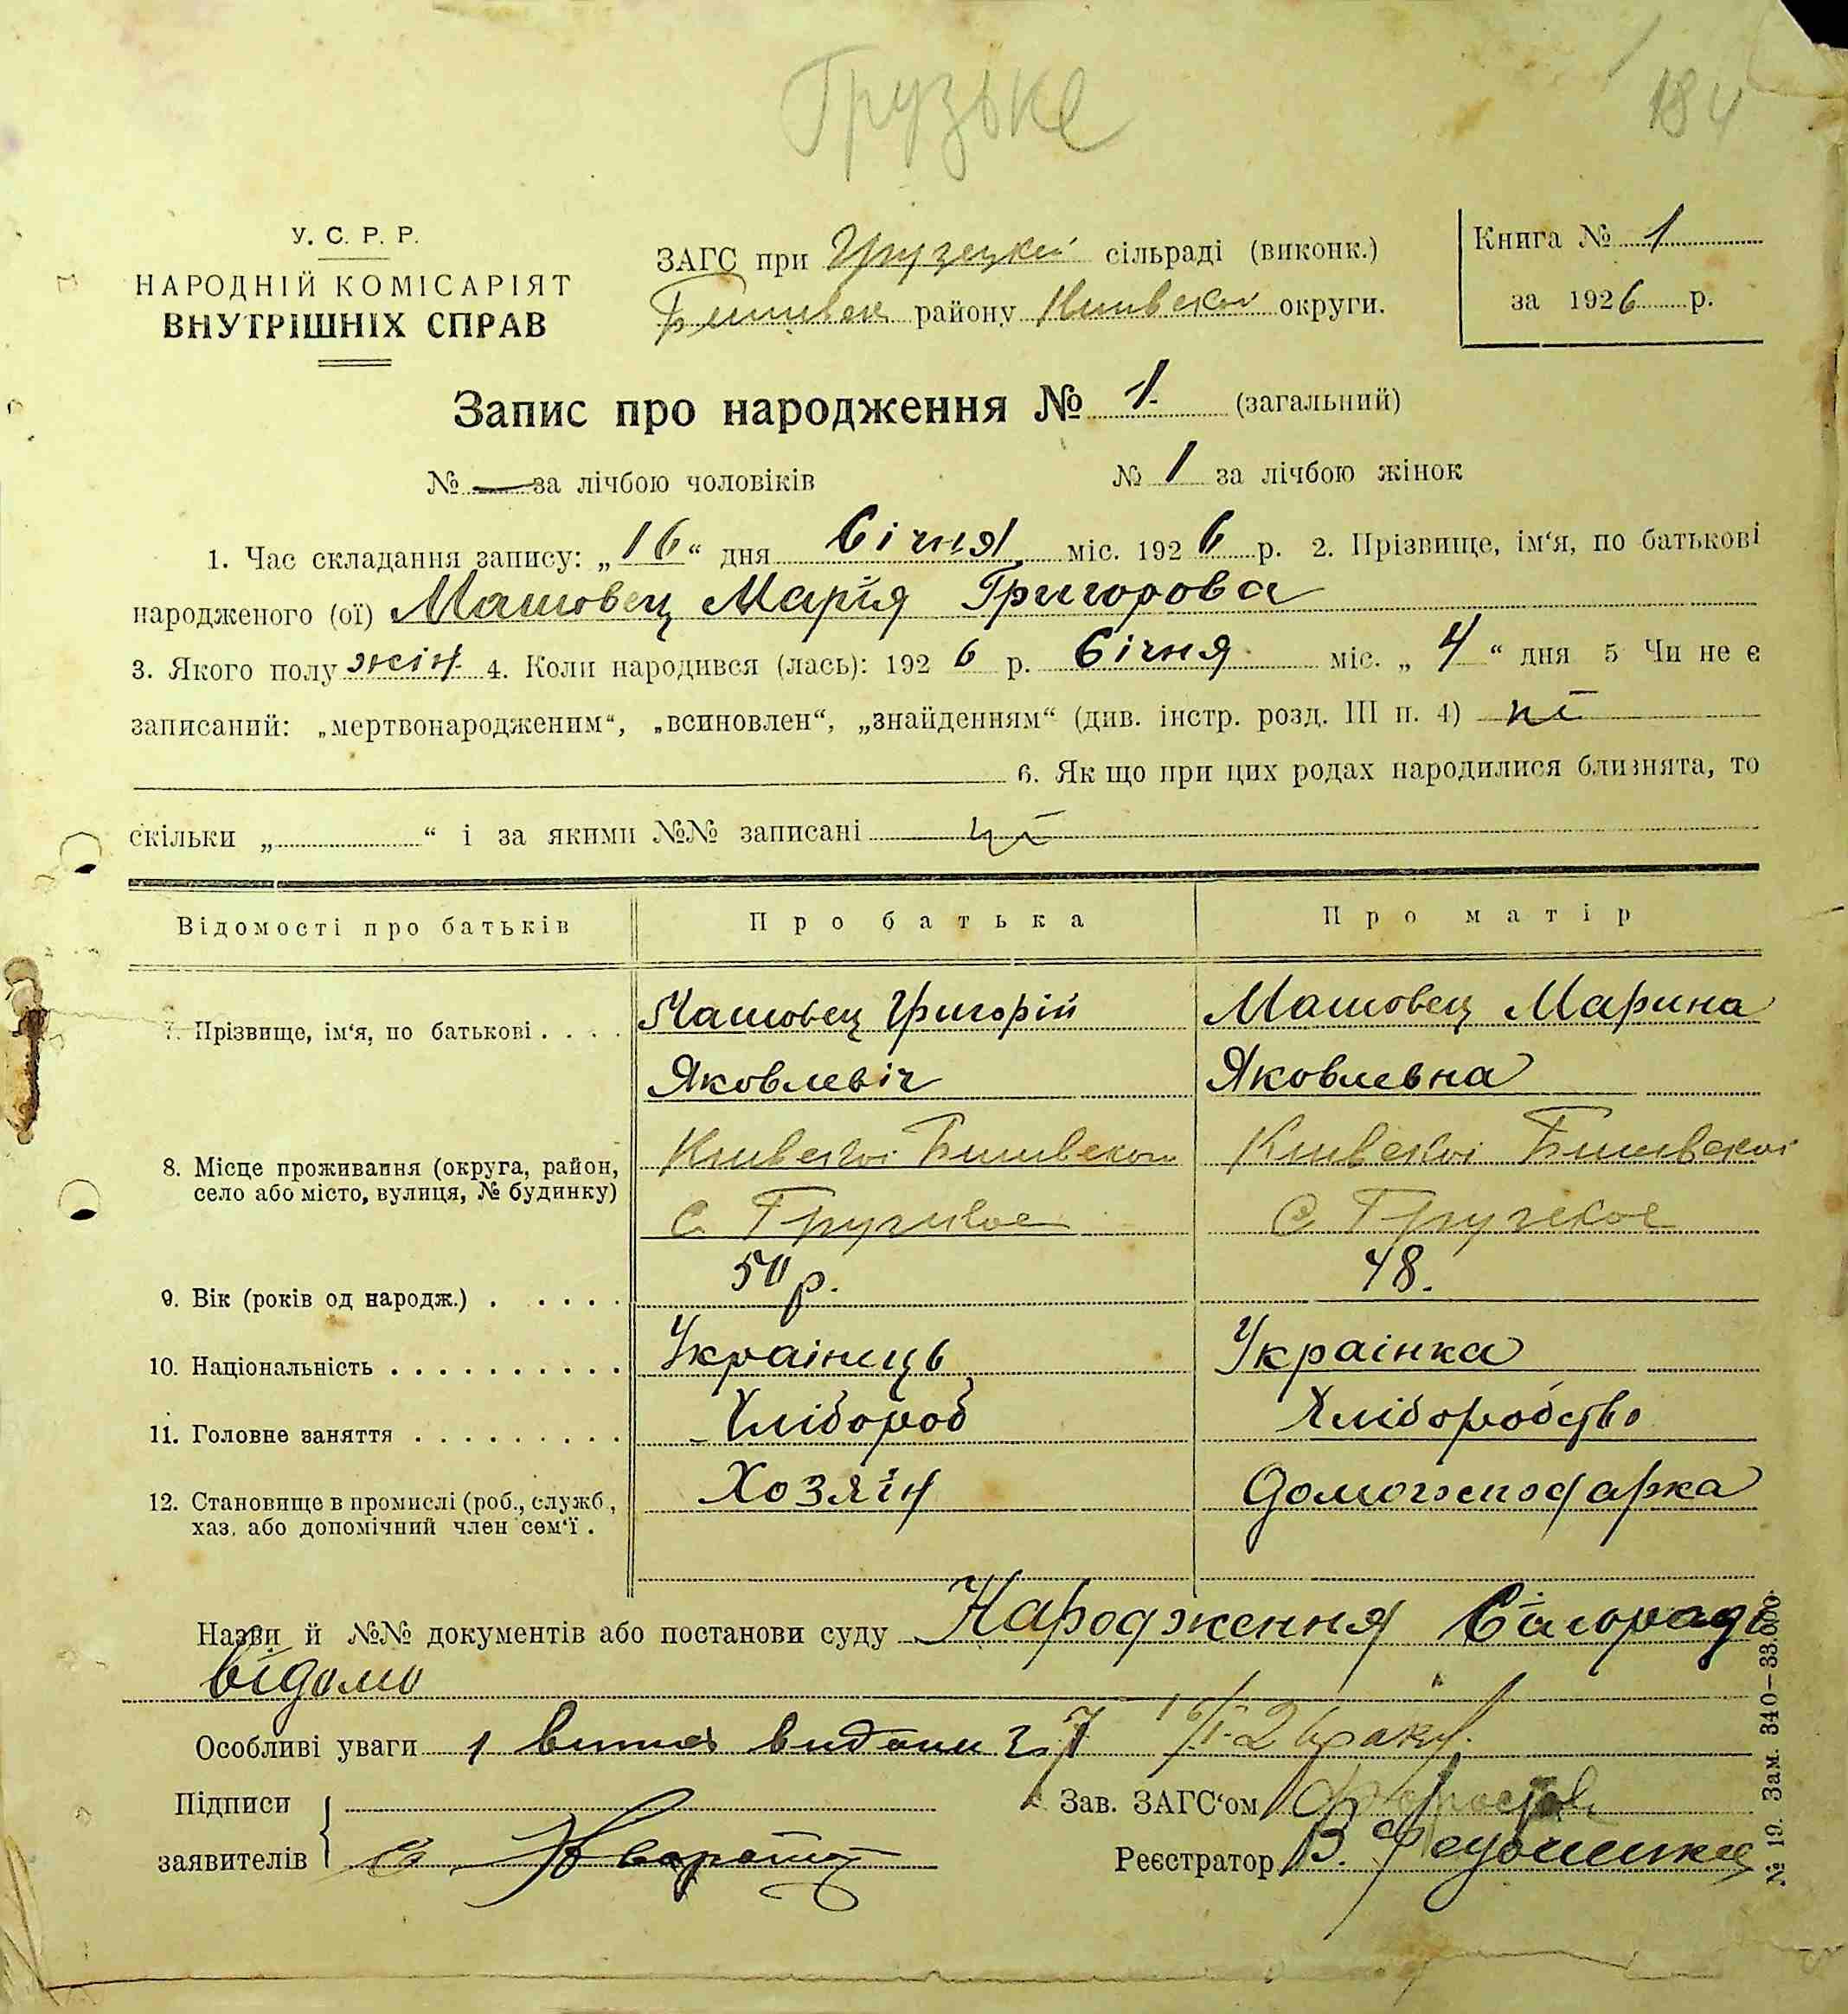 Грузьке
184
У. С. Р. Р.
НАРОДНІЙ КОМІСАРІЯТ
ВНУТРІШНІХ СПРАВ
ЗАГС при Грузецкій сільраді (виконк.)
району округи.
Книга № 1
за 1926 р.
Запис про народження № 1. (загальний)
№ — за лічбою чоловіків № 1 за лічбою жінок
1. Час складання запису: „16“ дня Січня міс. 1926 р. 2. Прізвище, ім‘я, по батькові
народженого (ої) Машовец Марія Григорова
3. Якого полу жін. 4. Коли народився (лась): 1926 р. Січня міс. „4“ дня 5 Чи не є
записаний: „мертвонародженим“, „всиновлен“, „знайденням“ (див. інстр. розд. III п. 4) ні
6. Як що при цих родах народилися близнята, то
скільки „ “ і за якими №№ записані ні
Відомості про батьків Про батька Про матір
7. Прізвище, ім‘я, по батькові . . . . Машовец Григорій Машовец Марина
Яковлевіч Яковлевна
8. Місце проживання (округа, район,
село або місто, вулиця, № будинку)
с. с Грузское
9. Вік (років од народж.) . . . . . 50 р. 48.
10. Національність . . . . . . . . . . Українець Українка
11. Головне заняття . . . . . . . . . Хлібороб Хліборобство
12. Становище в промислі (роб., служб., Хозяїн Домогосподарка
хаз. або допомічний член сем‘ї .
Назви й №№ документів або постанови суду Народження Сільраді
відомо
Особливі уваги 1
Підписи
заявителів
Зав. ЗАГС‘ом
Реєстратор В.
№ 19. Зам. 340—33.000.